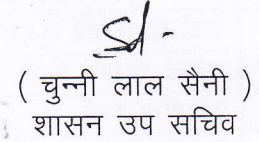 Sd -
( चुन्नी लाल सैनी )
शासन उप सचिव